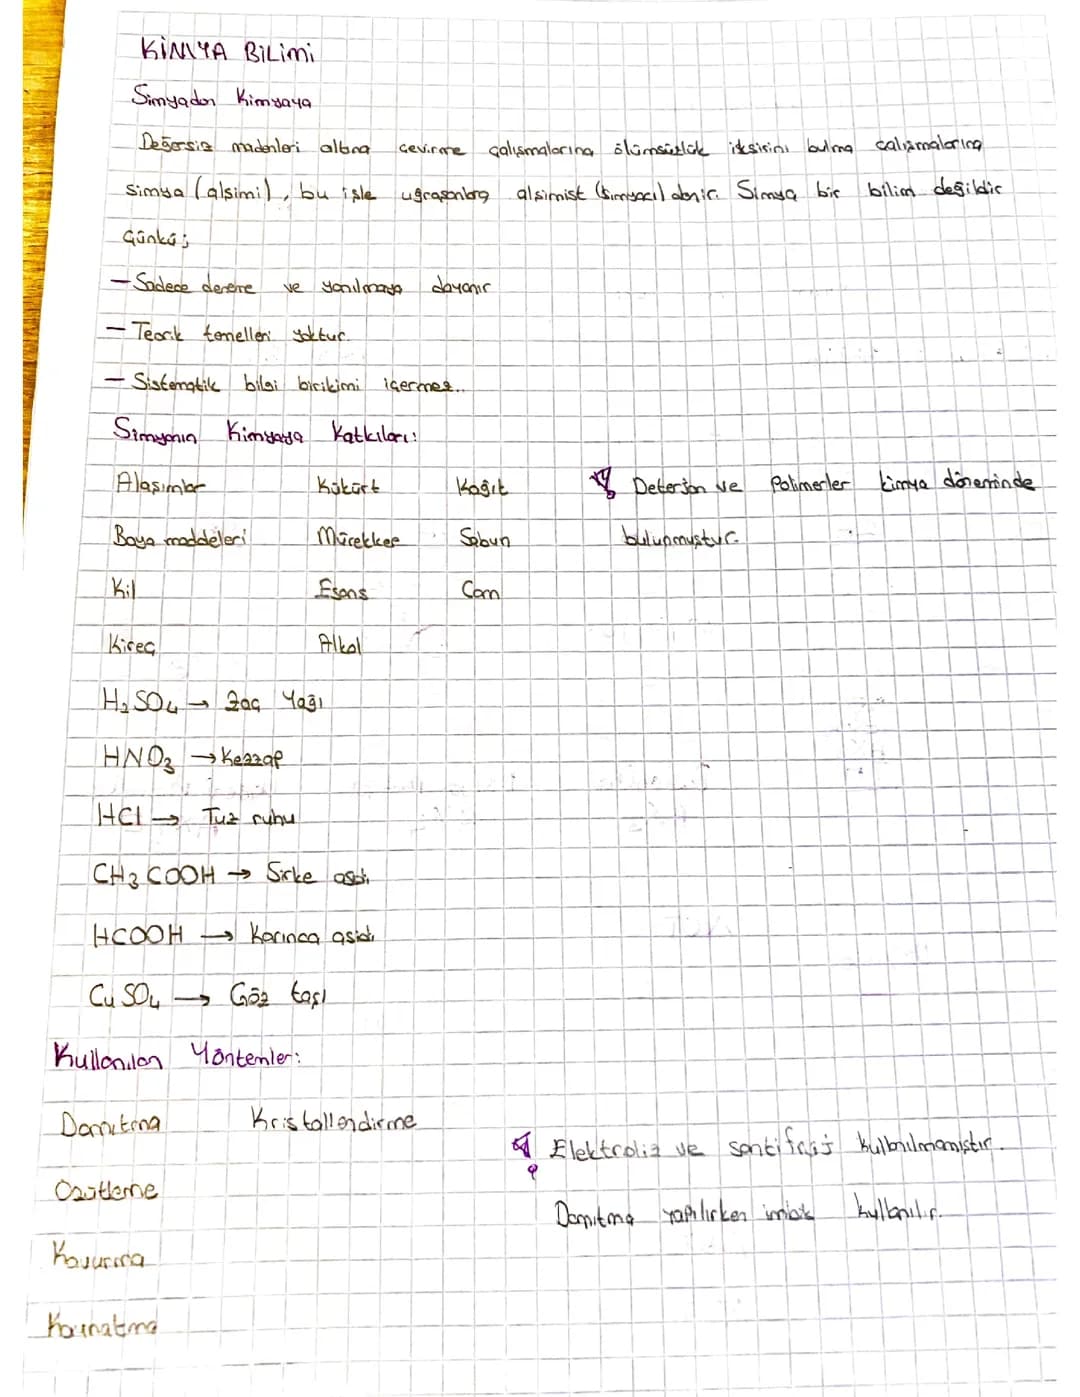 KİMYA BİLİMİ
Simyadan Kimyaya
Değersiz madenleri altına çevirme çalışmalarına ölümsüzlük iksirini bulma çalışmalarına
simya (alşimi), bu işle uğraşanlara alşimist (simyacı) denir. Simya bir bilim değildir
Çünkü;
- Sadece deneme ve yanılmaya dayanır
- Teorik temelleri yoktur.
- Sistematik bilgi birikimi içermez..
Simyanın Kimyaya Katkıları:
Alaşımlar Kükürt Kağıt Deterjan ve Polimerler kimya döneminde
Boya maddeleri Mürekkep Sabun bulunmuştur.
Kil Esans Cam
Kireç Alkol
H₂SO₄ → Zaç Yağı
HNO₃ → Kezzap
HCl → Tuz ruhu
CH₃COOH → Sirke asidi
HCOOH → Karınca asidi
CuSO₄ → Göz taşı
Kullanılan Yöntemler:
Damıtma Kristallendirme
Elektroliz ve santifrüj kullanılmamıştır.
Özütleme
Damıtma yapılırken imbik kullanılır.
Kavurma
Kaynatma